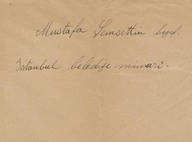 Mustafa Şemsettin bey.
İstanbul belediye mimarı.